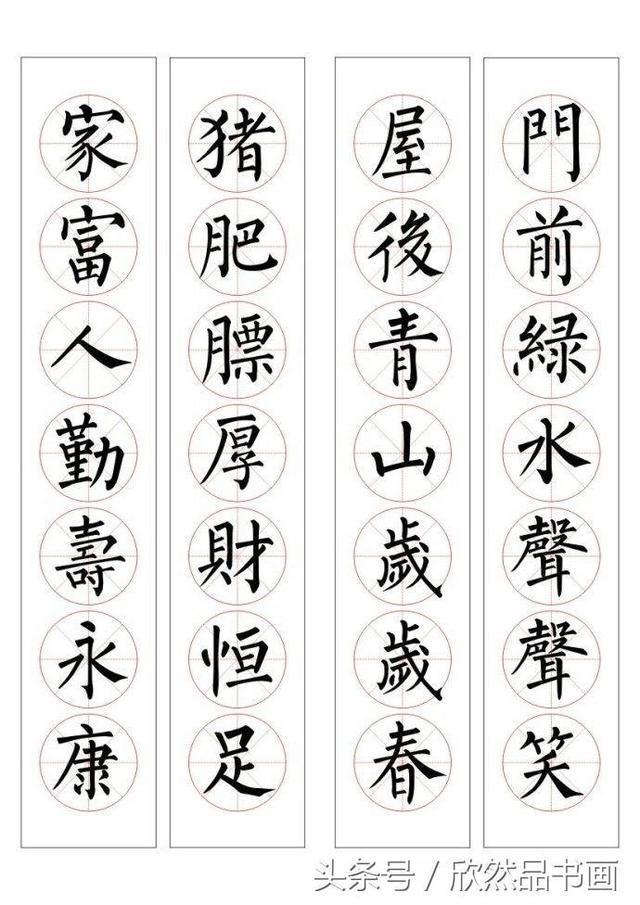 門前緑水聲聲笑
屋後青山歲歲春
猪肥膘厚財恒足
家富人勤壽永康
头条号 / 欣然品书画